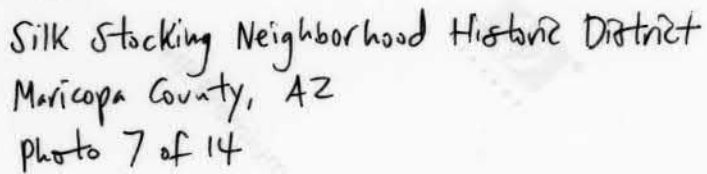 Silk Stocking Neighborhood Historic District
Maricopa County, AZ
photo 7 of 14